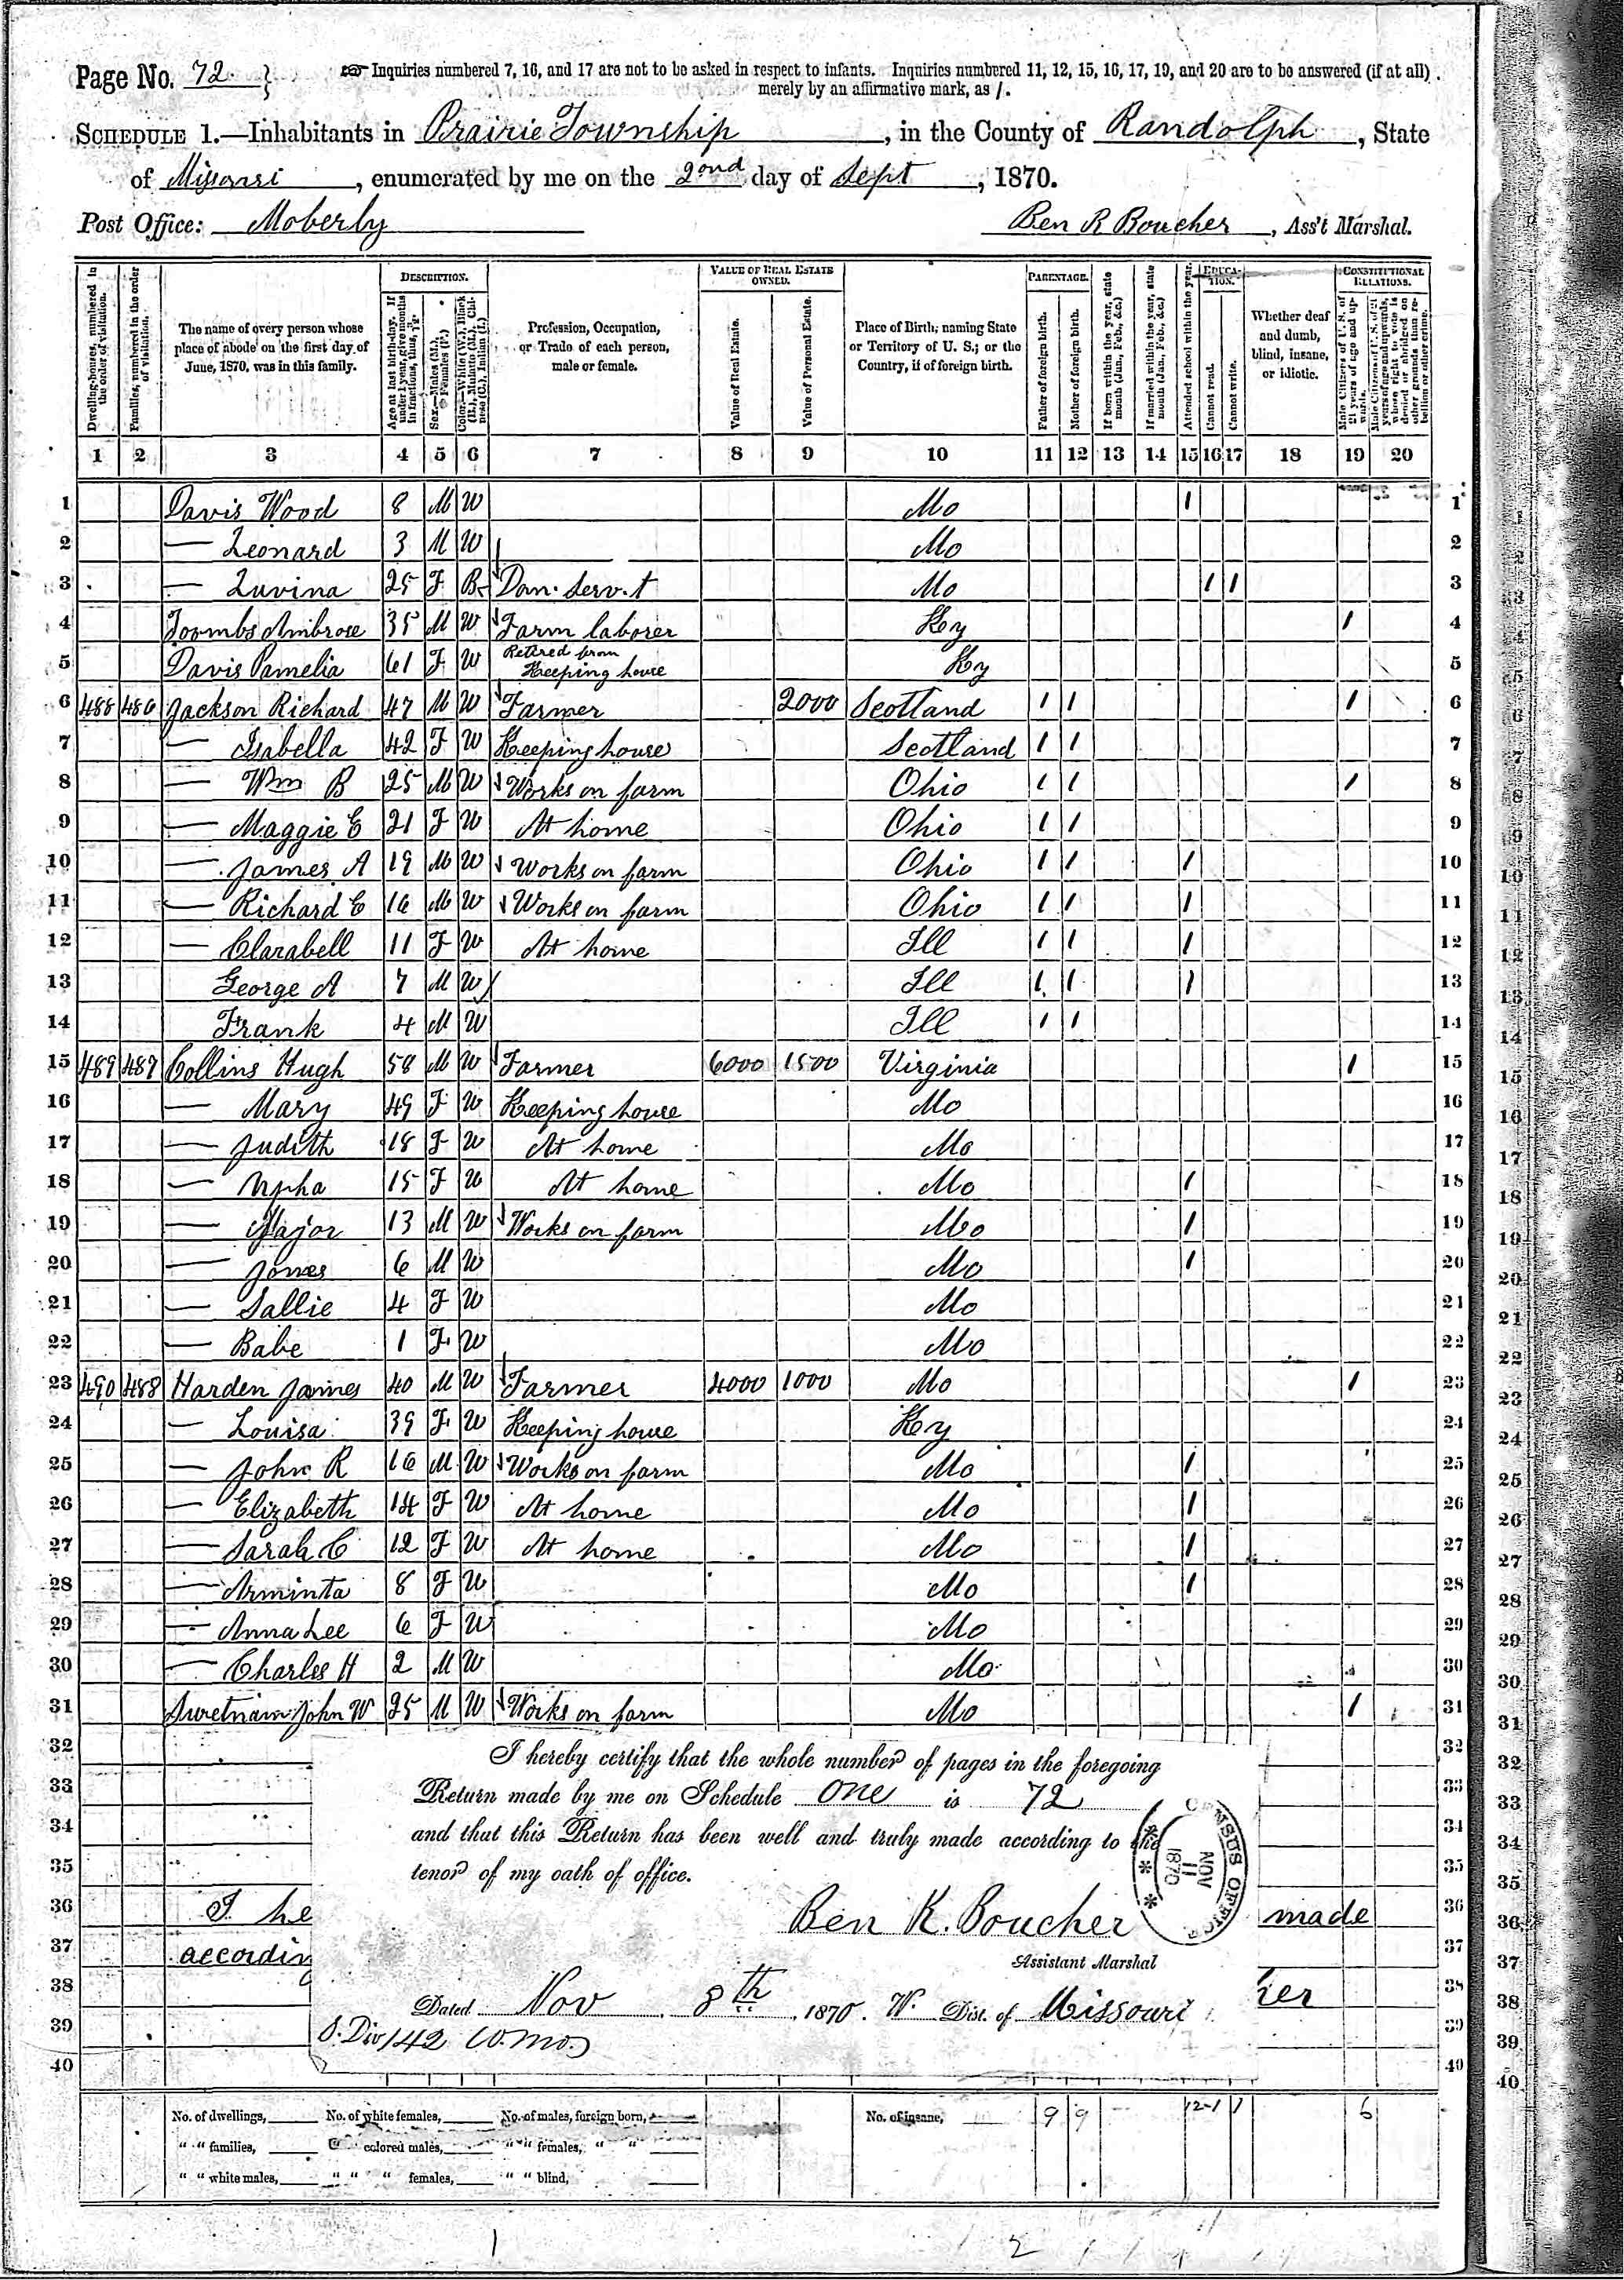 Page No. 72. } ☞ Inquiries numbered 7, 16, and 17 are not to be asked in respect to infants. Inquiries numbered 11, 12, 15, 16, 17, 19, and 20 are to be answered (if at all)
merely by an affirmative mark, as /.
SCHEDULE 1.—Inhabitants in Prairie Township, in the County of Randolph, State
of Missouri, enumerated by me on the 2nd day of Sept, 1870.
Post Office: Moberly Ben R Boucher, Ass't Marshal.
DESCRIPTION. VALUE OF REAL ESTATE OWNED. PARENTAGE. EDUCATION. CONSTITUTIONAL RELATIONS.
Dwelling-houses, numbered in the order of visitation.
Families, numbered in the order of visitation.
The name of every person whose place of abode on the first day of June, 1870, was in this family.
Age at last birth-day. If under 1 year, give months in fractions, thus, 3/12.
Sex.—Males (M.), Females (F.)
Color.—White (W.), Black (B.), Mulatto (M.), Chinese (C.), Indian (I.)
Profession, Occupation, or Trade of each person, male or female.
Value of Real Estate.
Value of Personal Estate.
Place of Birth, naming State or Territory of U. S.; or the Country, if of foreign birth.
Father of foreign birth.
Mother of foreign birth.
If born within the year, state month (Jan., Feb., &c.)
If married within the year, state month (Jan., Feb., &c.)
Attended school within the year.
Cannot read.
Cannot write.
Whether deaf and dumb, blind, insane, or idiotic.
Male Citizens of U. S. of 21 years of age and upwards.
Male Citizens of U. S. of 21 years of age and upwards, whose right to vote is denied or abridged on other grounds than rebellion or other crime.
1 2 3 4 5 6 7 8 9 10 11 12 13 14 15 16 17 18 19 20
1 Davis Wood 8 M W Mo 1 1
2 — Leonard 3 M W Mo 2
3 — Luvina 25 F B Dom. Serv.t Mo 1 1 3
4 Toombs Ambrose 35 M W Farm laborer Ky 1 4
5 Davis Pamelia 61 F W Retired from Keeping house Ky 5
6 488 486 Jackson Richard 47 M W Farmer 2000 Scotland 1 1 1 6
7 — Isabella 42 F W Keeping house Scotland 1 1 7
8 — Wm B 25 M W Works on farm Ohio 1 1 1 8
9 — Maggie E 21 F W At home Ohio 1 1 9
10 — James A 19 M W Works on farm Ohio 1 1 1 10
11 — Richard E 16 M W Works on farm Ohio 1 1 1 11
12 — Clarabell 11 F W At home Ill 1 1 1 12
13 George A 7 M W Ill 1 1 1 13
14 Frank 4 M W Ill 1 1 14
15 489 487 Collins Hugh 58 M W Farmer 6000 1500 Virginia 1 15
16 — Mary 49 F W Keeping house Mo 16
17 — Judith 18 F W At home Mo 17
18 — 15 F W At home Mo 1 18
19 — Major 13 M W Works on farm Mo 1 19
20 — Jones 6 M W Mo 1 20
21 — Sallie 4 F W Mo 21
22 — Babe 1 F W Mo 22
23 490 488 Harden James 40 M W Farmer 4000 1000 Mo 1 23
24 — Louisa 39 F W Keeping house Ky 24
25 — John R 16 M W Works on farm Mo 1 25
26 — Elizabeth 14 F W At home Mo 1 26
27 — Sarah C 12 F W At home Mo 1 27
28 — Arminta 8 F W Mo 1 28
29 — Anna Lee 6 F W Mo 29
30 — Charles H 2 M W Mo 30
31 Swetnam John W 25 M W Works on farm Mo 1 31
32 I hereby certify that the whole number of pages in the foregoing 32
33 Return made by me on Schedule one is 72 33
34 and that this Return has been well and truly made according to the 34
35 tenor of my oath of office. 35
CENSUS OFFICE NOV 11 1870
36 I he Ben K. Boucher made 36
37 accordin Assistant Marshal 37
38 Dated Nov 8th, 1870. W. Dist. of Missouri er 38
39 S. Div 142 W. Mo. 39
40 40
No. of dwellings, No. of white females, No. of males, foreign born, No. of insane, 9 9 12 1 1 6
" " families, " colored males, " " females, " "
" " white males, " " " females, " " blind,
1 2